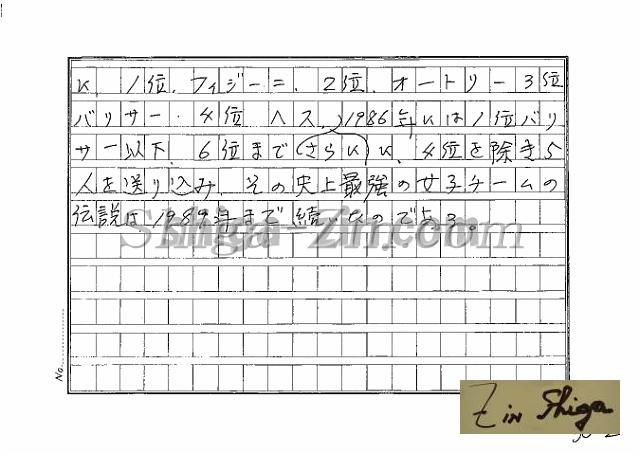 に、1位、フィジーニ、2位、オートリー3位
バリサー・4位 ヘス、)1986年には1位バリ
サー以下、6位まで(さらに)に、4位を除き5
人を送り込み、その史上最強の女子チームの
伝説は1989年まで続いたのである。
Shiga-Zin.com
No.
Z in Shiga